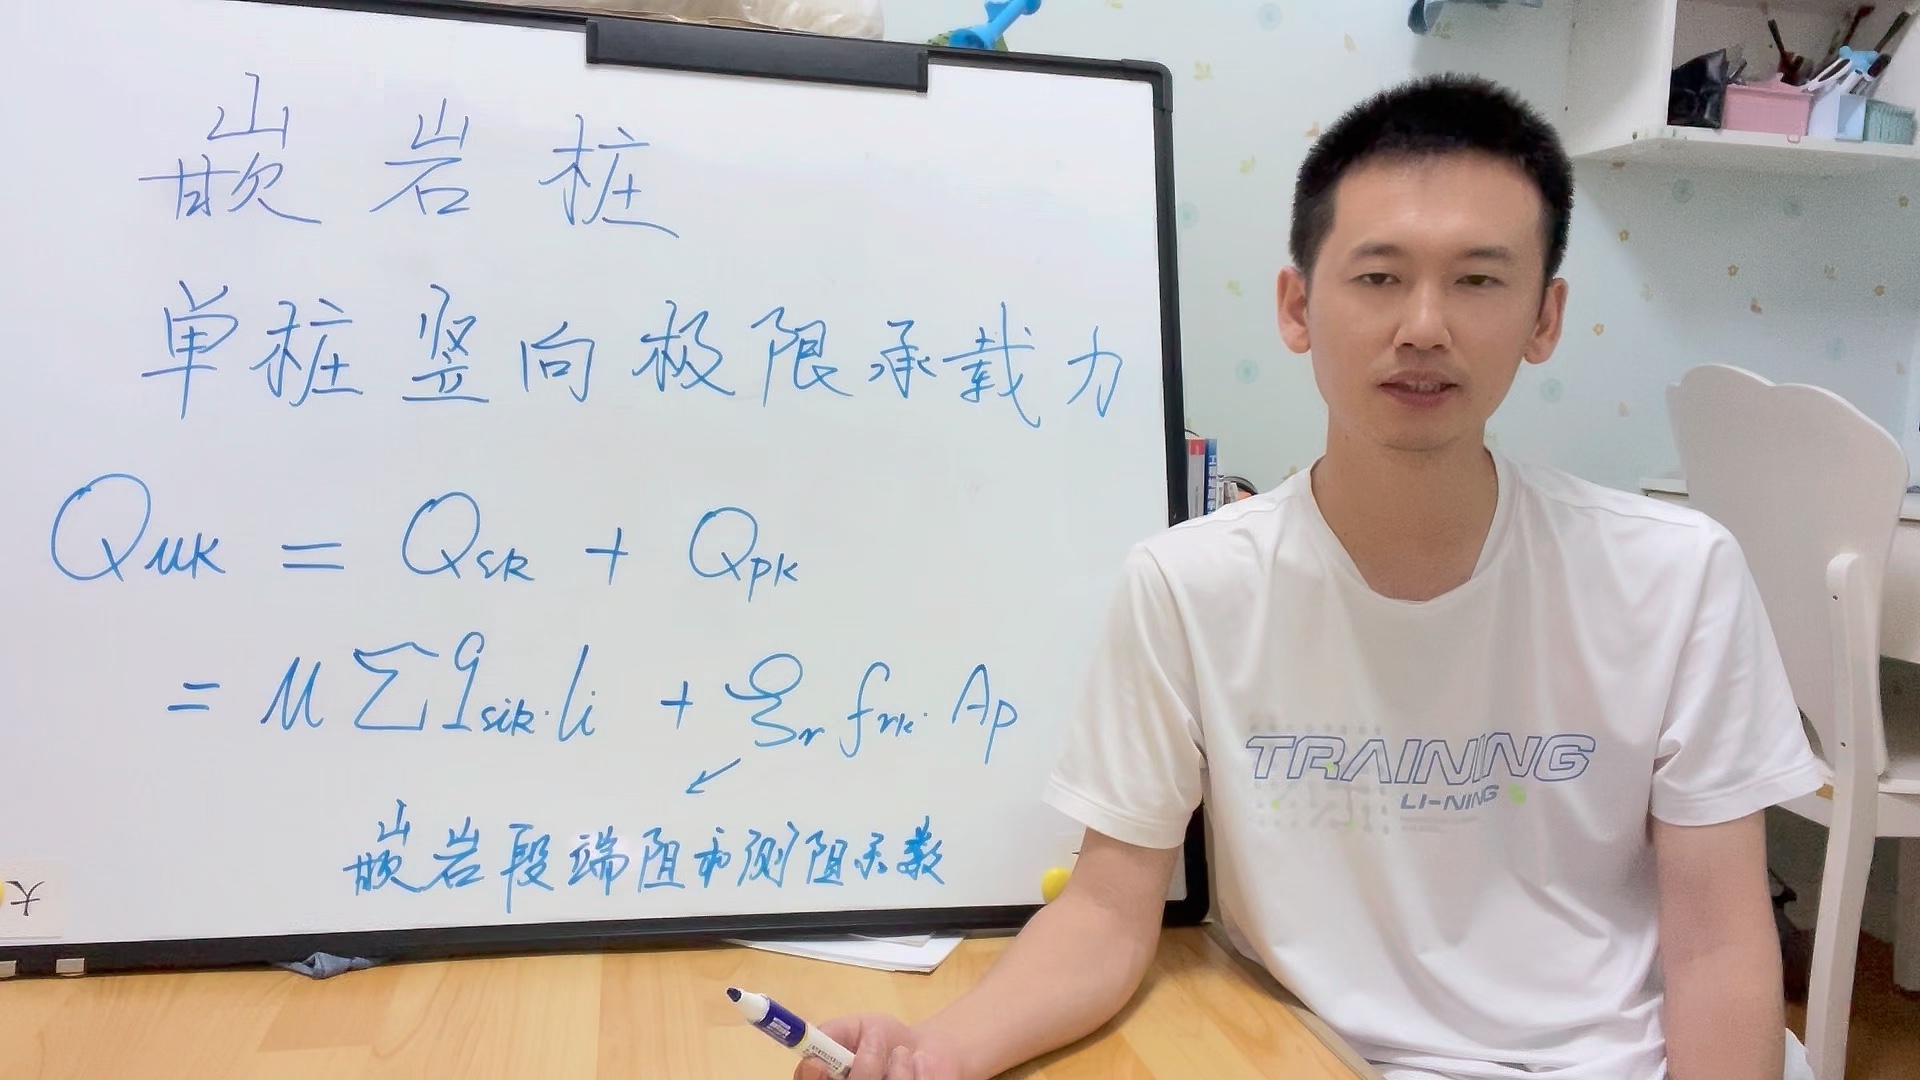 嵌岩桩
单桩竖向极限承载力
Quk = Qsk + Qpk
= u∑qsik·li + ξr frk·Ap
嵌岩段端阻和测阻系数
大
TRAINING
LI-NING